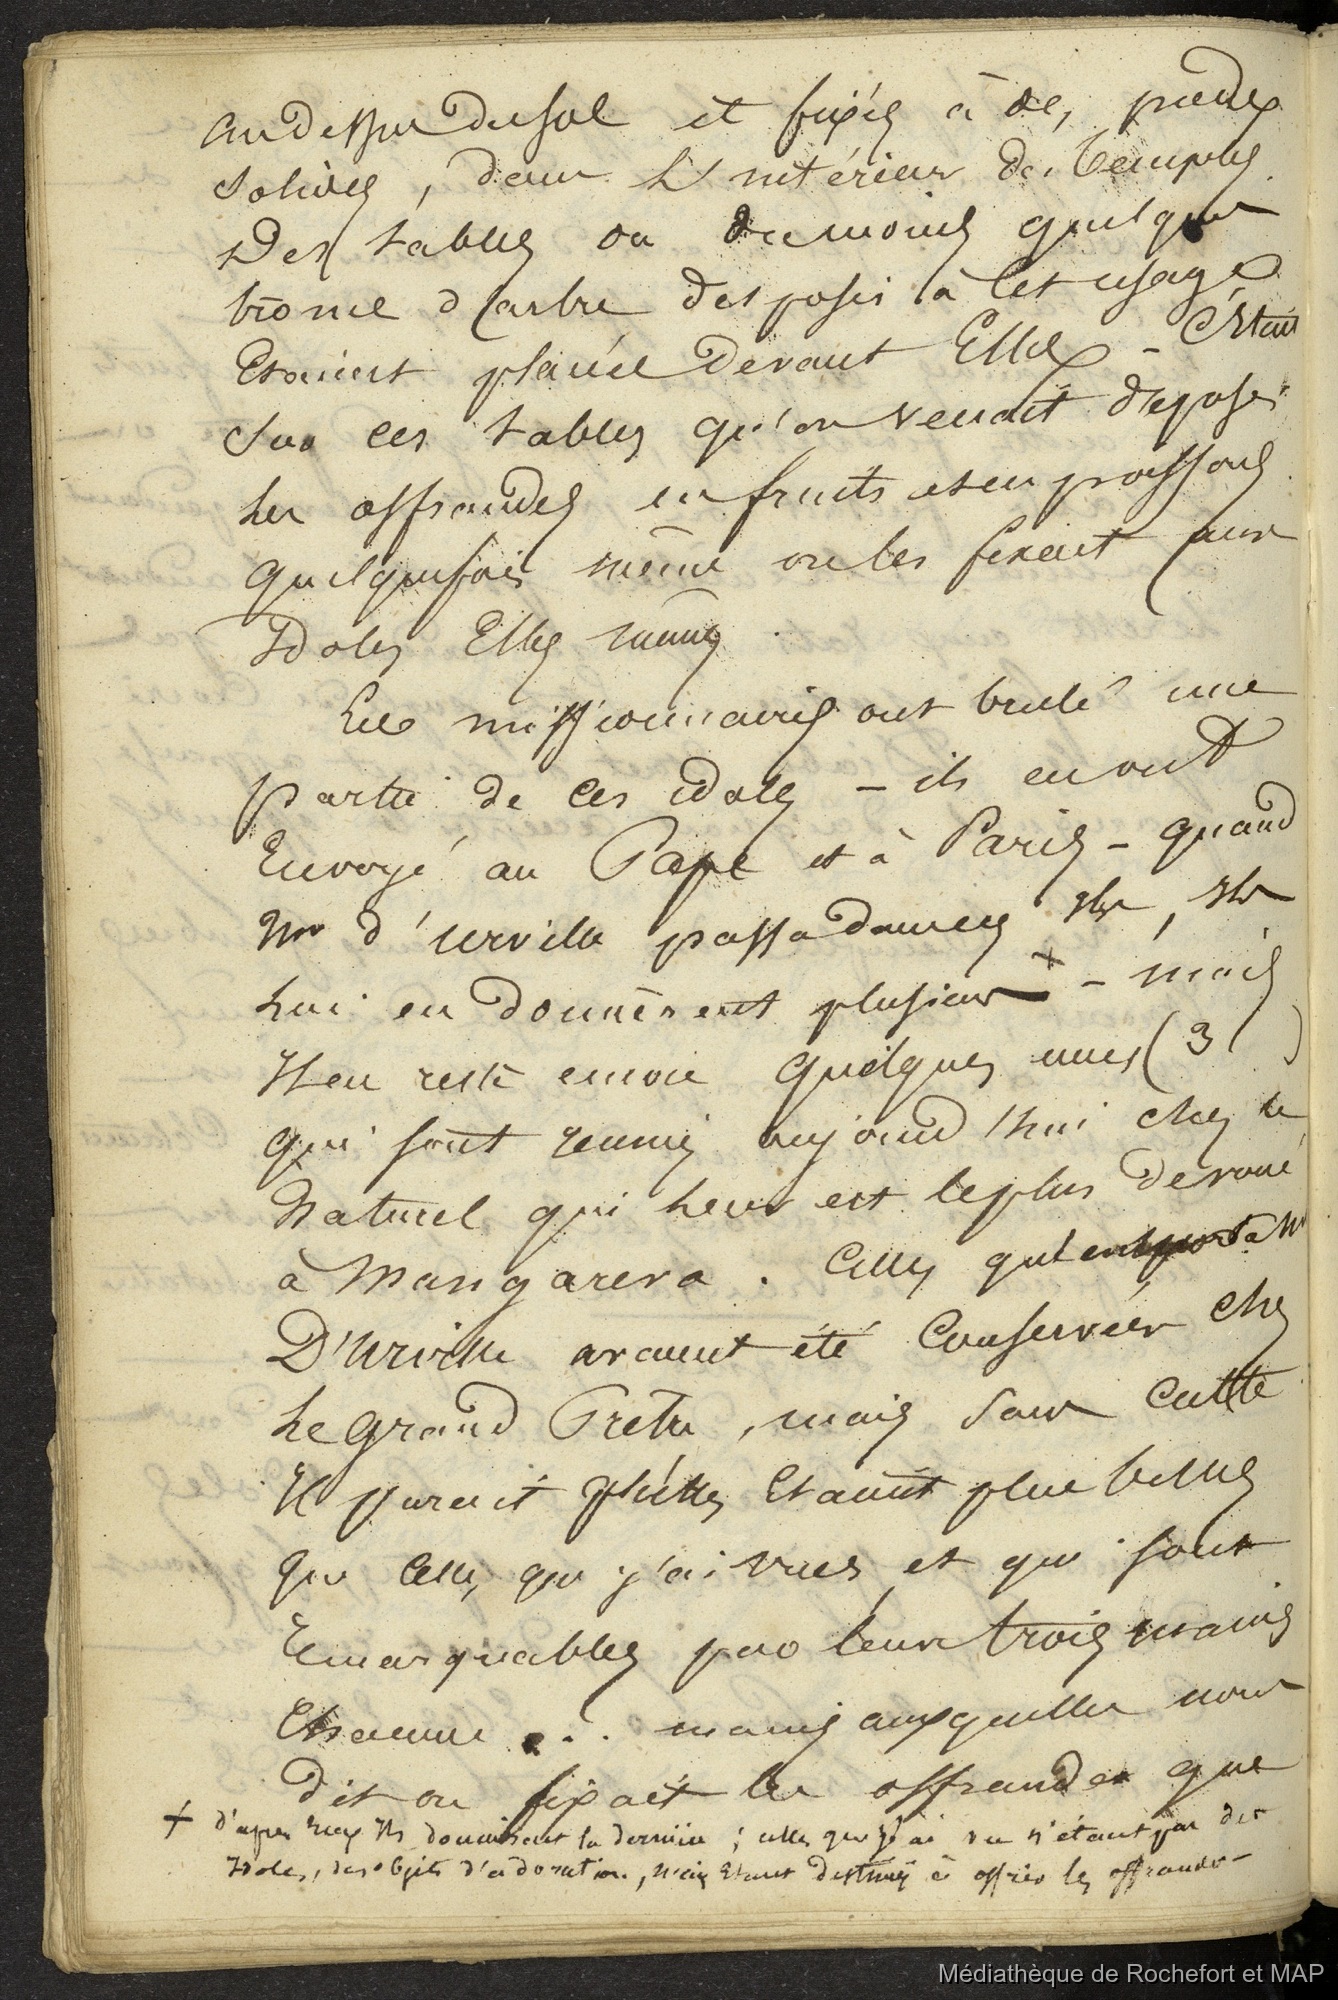 au dessus du sol et fixés à des pieux
solides, dans l'intérieur des temples.
Des tables ou du moins quelques
tronc d'arbre disposés à cet usage
Etaient placées devant Elles - C'Etait
sur ces tables qu'on venait déposer
les offrandes en fruits et en poissons
quelquefois même on les fixait aux
Idoles Elles mêmes.
Les missionnaires ont brulé une
partie de ces idoles - ils en ont
Envoyé au Pape et à Paris - quand
Mr d'Urville passa dans ces Iles, Ils
lui en donnèrent plusieurs + - mais
Il en reste encore quelques unes (3)
qui sont reunies aujourd'hui chez le
Naturel qui leur est le plus dévoué
à Mangareva. Celles qu'emporta Mr
D'Urville avaient été Conservées chez
le grand Prêtre, mais sans Culte
Il parait qu'elles Etaient plus belles
que celles que j'ai vues, et qui sont
Remarquables par leurs trois mains
Chacune ... mains auxquelles nous
dit on fixait les offrandes que
+ d'après eux Ils donnèrent la dernière ; celles que j'ai vu n'étaient pas des
Idoles, des objets d'adoration, mais Etaient destinées à offrir les offrandes -
Médiathèque de Rochefort et MAP